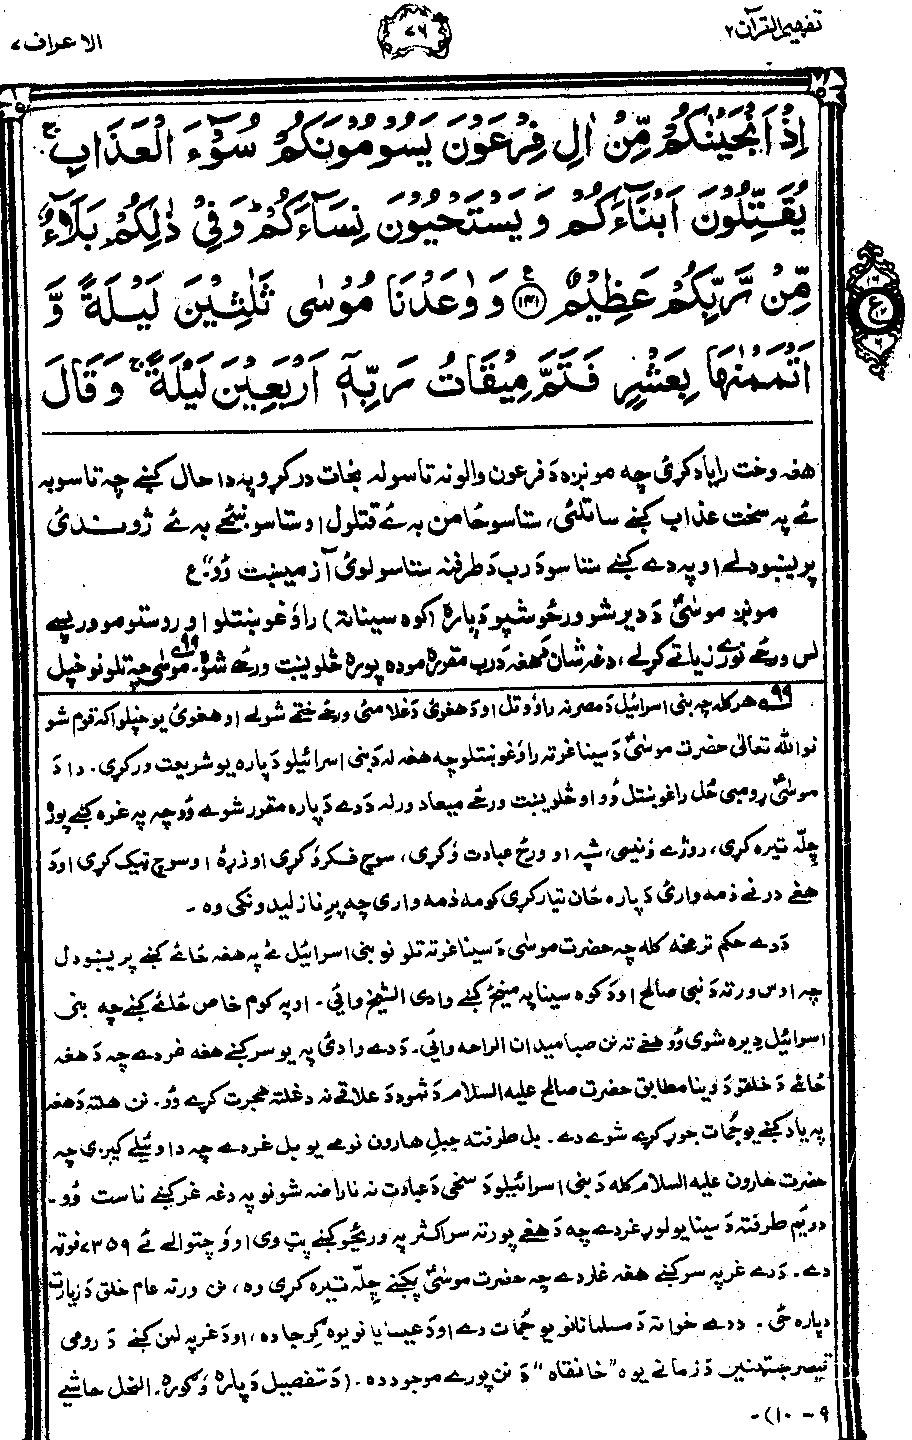 تفهيم القرآن ۲
۷۶
الاعراف ۷
اِذْ اَنْجَيْنٰكُمْ مِّنْ اٰلِ فِرْعَوْنَ يَسُوْمُوْنَكُمْ سُوْٓءَ الْعَذَابِ ۚ
يُقَتِّلُوْنَ اَبْنَآءَكُمْ وَ يَسْتَحْيُوْنَ نِسَآءَكُمْ ؕ وَفِيْ ذٰلِكُمْ بَلَآءٌ
مِّنْ رَّبِّكُمْ عَظِيْمٌ ﴿۱۴۱﴾ وَ وٰعَدْنَا مُوْسٰى ثَلٰثِيْنَ لَيْلَةً وَّ
اَتْمَمْنٰهَا بِعَشْرٍ فَتَمَّ مِيْقَاتُ رَبِّهٖٓ اَرْبَعِيْنَ لَيْلَةً ۚ وَقَالَ
هغه وخت راياد كړئ چه مونږه دَ فرعون والو نه تاسو له نجات دركړو په دا حال كښے چه تاسو به
ئے په سخت عذاب كښے ساتلئ، ستاسو ځامن به ئے قتلول او ستاسو ښځے به ئے ژوندئ
پريښودلے او په دے كښے ستاسو دَ رب دَ طرفنه ستاسو لوئ آزمېښت وُو. ع
مونږه موسٰىؑ دَ ديرشو ورځو شپو دَپاره (كوه سينا ته) راوَغوښتلو او روستو مو ور پسے
لس ورځے نورے زياتے كړلے، دغه شان هغه دَ رب مقرره موده پوره څلويښت ورځے شوه. ۹۹ موسٰى چه تلو نو خپل
۹۹ هر كله چه بنى اسرائيل دَ مصر نه راوُوتل او دَ هغوئ دَ غلامئ ورځے ختمے شولے او هغوئ يو خپلواكه قوم شو
نو الله تعالٰى حضرت موسٰىؑ دَ سينا غر ته راوَغوښتلو چه هغه له دَ بنى اسرائيلو دَپاره يو شريعت وركړى. دا دَ
موسٰىؑ رومبى ځل راغوښتل وُو او څلويښت ورځے ميعاد ورله دَدے دَپاره مقرر شوے وُو چه په غره كښے پوره
چِلّه تيره كړى، روژے وَنيسى، شپه او ورځ عبادت وَكړى، سوچ فكر وَكړى او زړهٔ او سوچ ټيك كړى او دَ
هغے درنے ذمه وارئ دَپاره ځان تيار كړى كومه ذمه وارى چه پرِ نازليدونكى وه ۔
دَدے حكم ترمخه كله چه حضرت موسٰى دَ سينا غر ته تلو نو بنى اسرائيل ئے په هغه ځائے كښے پريښودل
چه اوس ورته دَ نبى صالح او دَ كوه سينا په مينځ كښے وادى الشيخ وائى. او په كوم خاص ځائے كښے چه بنى
اسرائيل ډيره شوى وُو هغے ته نن صبا ميدان الراحه وائى. دَدے وادئ په يو سر كښے هغه غر دے چه دَ هغه
ځائے دَ خلقو دَ وينا مطابق حضرت صالح عليه السلام دَ ثمود دَ علاقے نه دغلته هجرت كړے وُو. نن هلته دَ هغه
په ياد كښے يو جُمات جوړ كړے شوے دے. بل طرفته جبل هارون نومے يو بل غر دے چه دا وئيلے كيږى چه
حضرت هارون عليه السلام كله دَ بنى اسرائيلو دَ سخى دَ عبادت نه ناراضه شو نو په دغه غر كښے ناست وُو.
دويم طرفته دَ سينا يو لوړ غر دے چه دَ هغے پورته سر اكثر په وريځو كښے پټ وى او وُچتوالے ئے ۷۳۵۹ فوټه
دے. دَدے غر په سر كښے هغه غار دے چه حضرت موسٰىؑ پكښے چِلّه تيره كړى وه، نن ورته عام خلق دَ زيارت
دپاره ځى. دَدے خوا ته دَ مسلمانانو يو جُمات دے او دَ عيسايانو يوه ګرجا ده، او دَ غر په لمن كښے دَ رومى
قيصر جسټينين دَ زمانے يوه "خانقاه" دَ نن پورے موجود ده. (دَ تفصيل دَپاره وَګوره. النحل حاشيے
۹ - ۱۰)۔